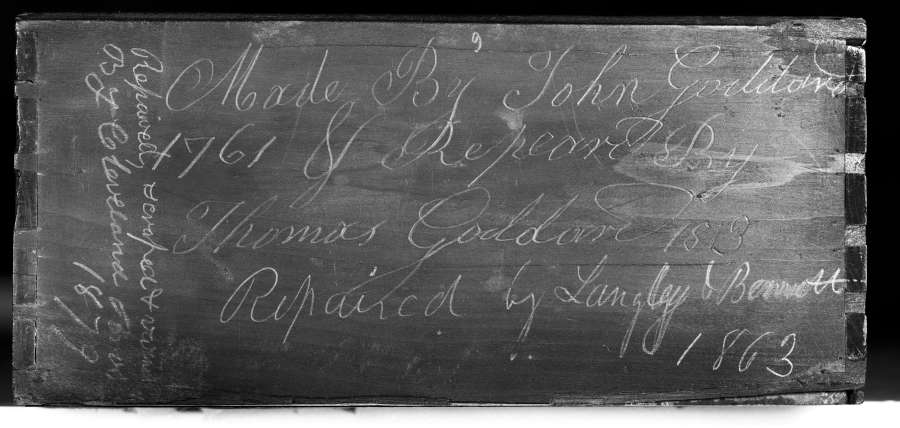 Made By John Goddard
1761 & Repeard By
Thomas Goddard 1813
Repaired by Langley & Bennett
1863
Repaired, scraped &
By Cleveland
187